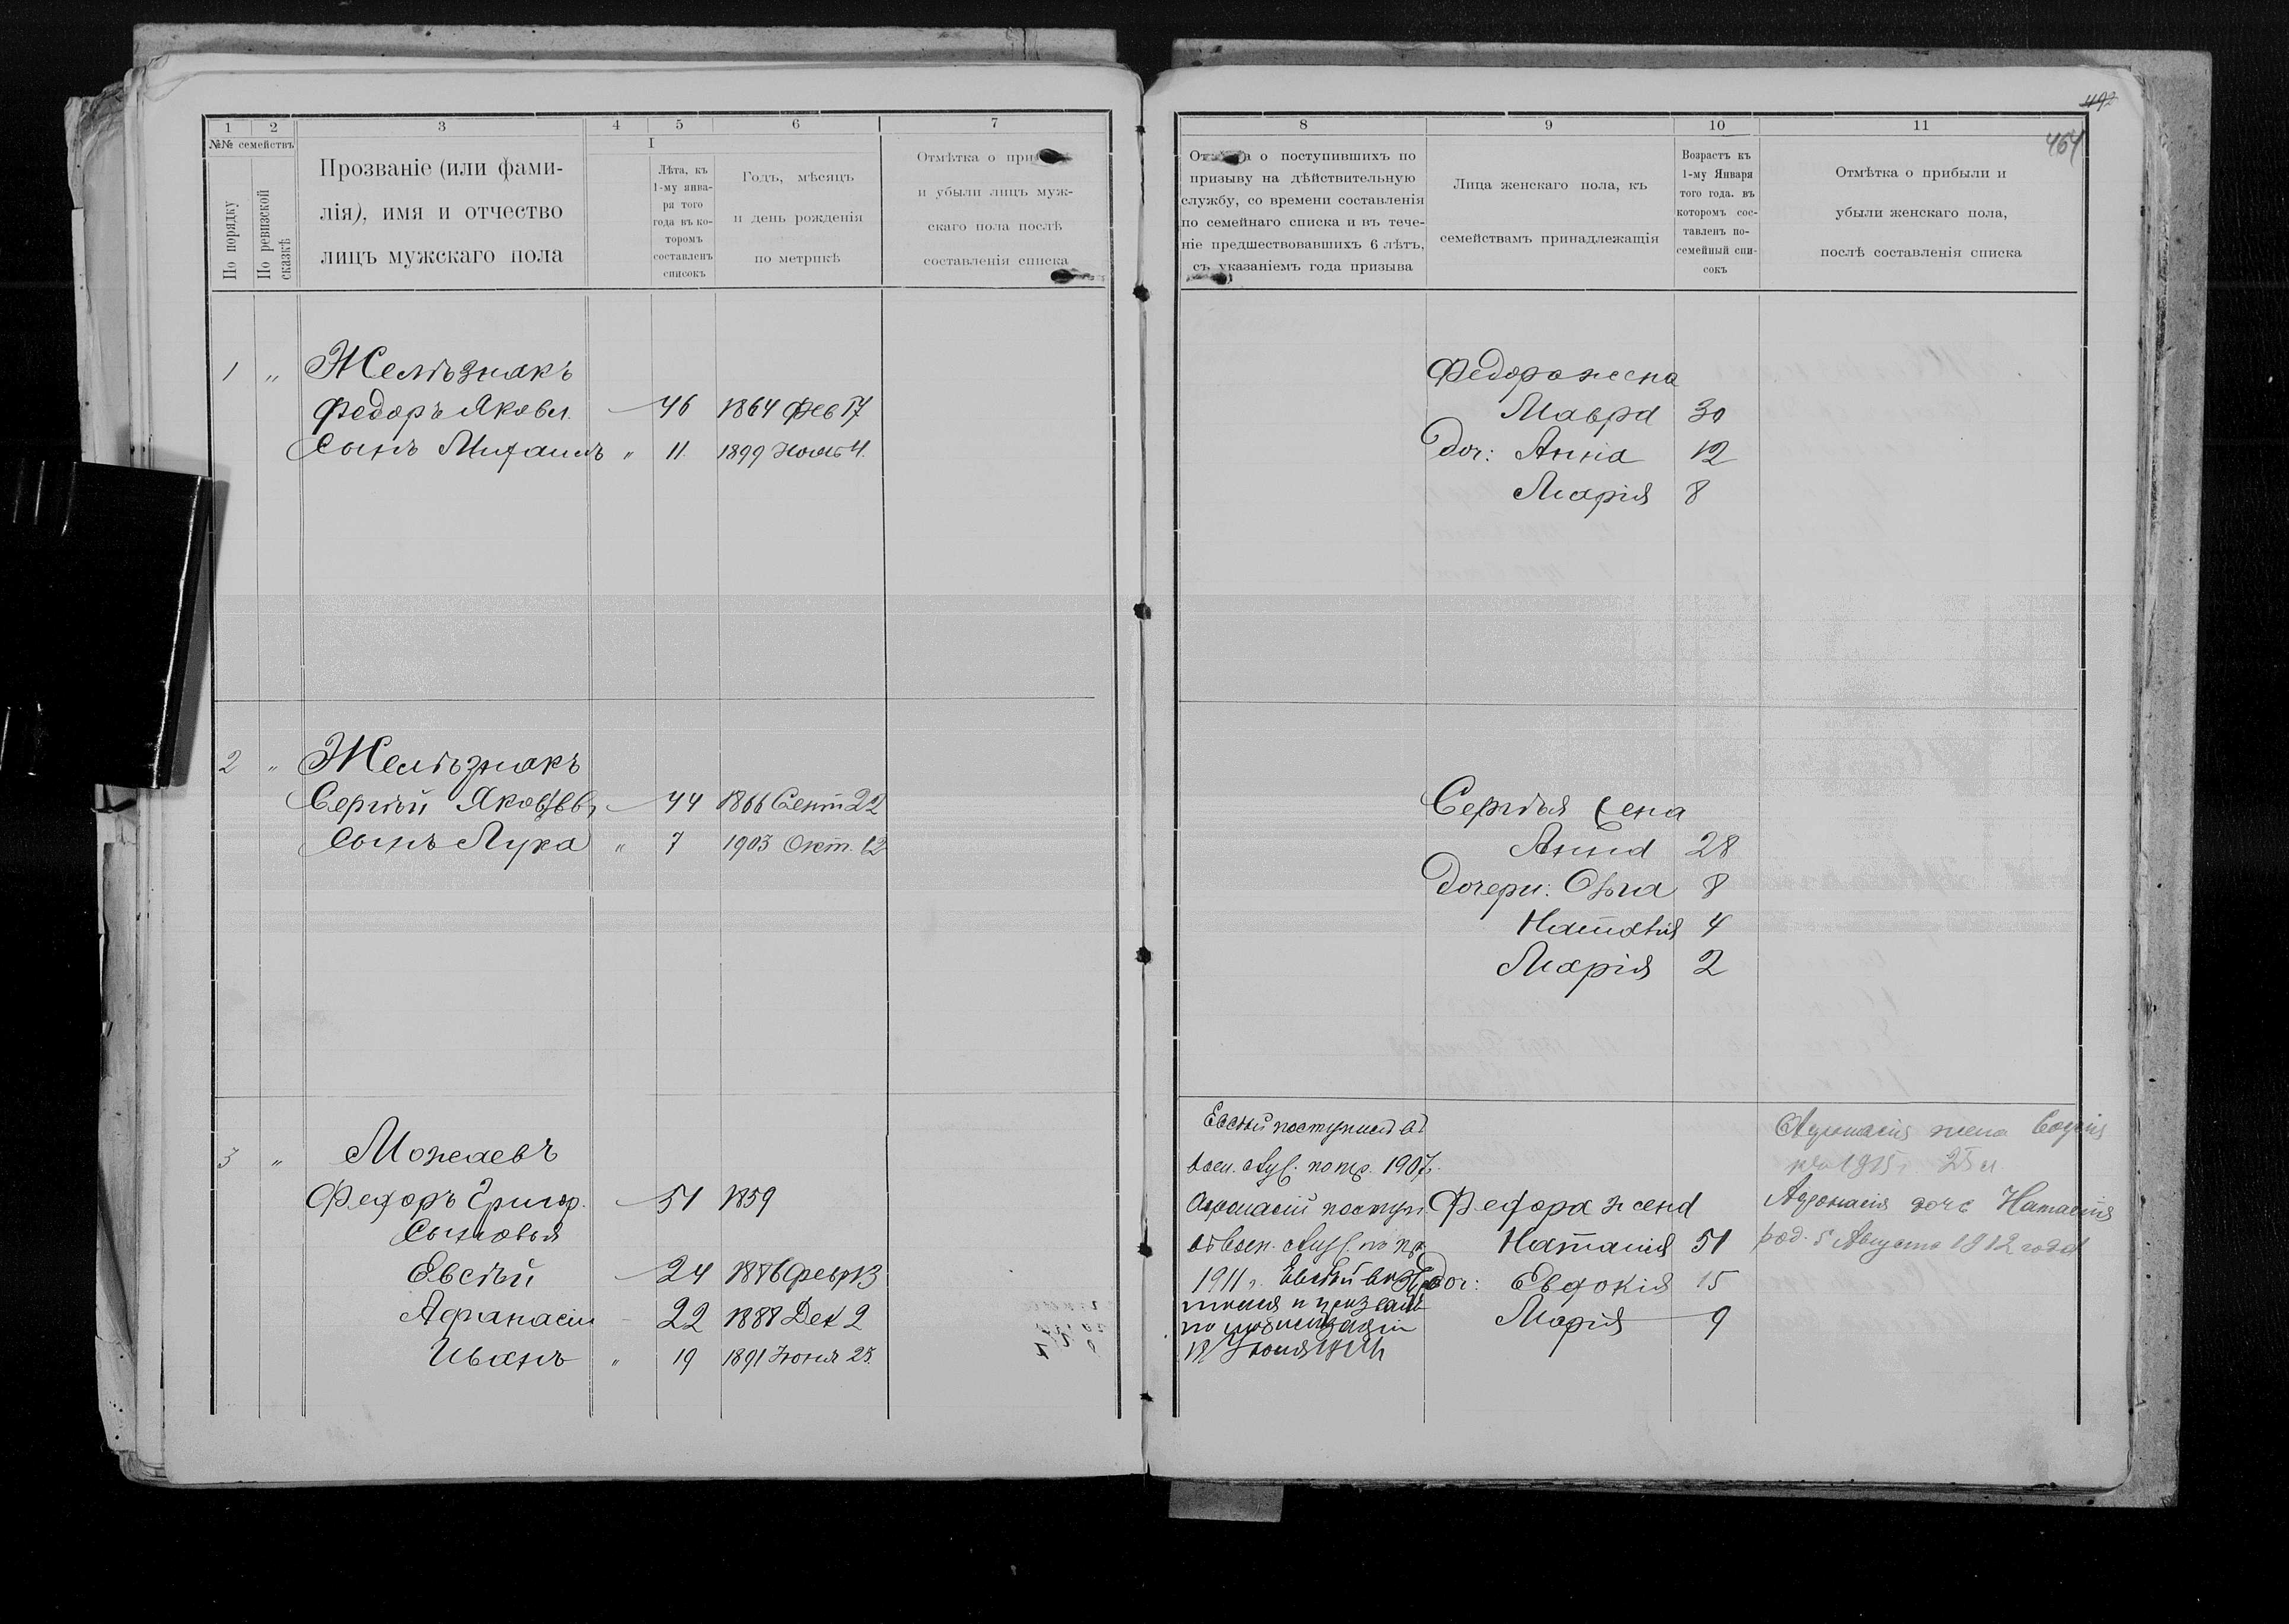 1
2
3
4
5
6
7
№№ семействъ
По порядку
По ревизской сказкѣ
Прозваніе (или фами-
лія), имя и отчество
лицъ мужскаго пола
I
Лѣта, къ
1-му янва-
ря того
года въ ко-
торомъ
составленъ
списокъ
Годъ, мѣсяцъ
и день рожденія
по метрикѣ
Отмѣтка о
и убыли лицъ муж-
скаго пола послѣ
составленія списка
1 „ Желѣзнякъ
Федоръ Яковл. 46 1864 Фев 17
Сынъ Михаилъ „ 11. 1899 4.
2 „ Желѣзнякъ
Сергѣй 44 1866 Сент 22
Сынъ Лука „ 7 1903 Окт. 12
3 „ Можаевъ
Федоръ Григор. 51 1859
Сыновья
Евсѣй 24 1886 Февр 13
Афанасій 22 1888 Дек 2
Иванъ „ 19 1891 Іюня 25.
492
464
8
9
10
11
о поступившихъ по
призыву на дѣйствительную
службу, со времени составленія
по семейнаго списка и въ тече-
ніе предшествовавшихъ 6 лѣтъ,
съ указаніемъ года призыва
Лица женскаго пола, къ
семействамъ принадлежащія
Возрастъ къ
1-му Января
того года. въ
которомъ сос-
тавленъ по-
семейный спи-
сокъ
Отмѣтка о прибыли и
убыли женскаго пола,
послѣ составленія списка
Федора жена
Мавра 30
Доч: Анна 12
Марія 8
Сергѣя жена
Анна 28
Дочери: Ольга 8
Наталія 4
Марія 2
Евсѣй поступилъ въ
воен. служ. по пр. 1907.
Афонасій поступ.
въ воен. служ. по пр.
1911 г. Евсѣй
по мобилизаціи
18 Іюля 1914
Федора жена
Наталія 51
Доч: Евдокія 15
Марія 9
Афонасія жена Софія
1915 г. 25 л.
Афонасія дочь Наталія
род. 5 Августа 1912 года